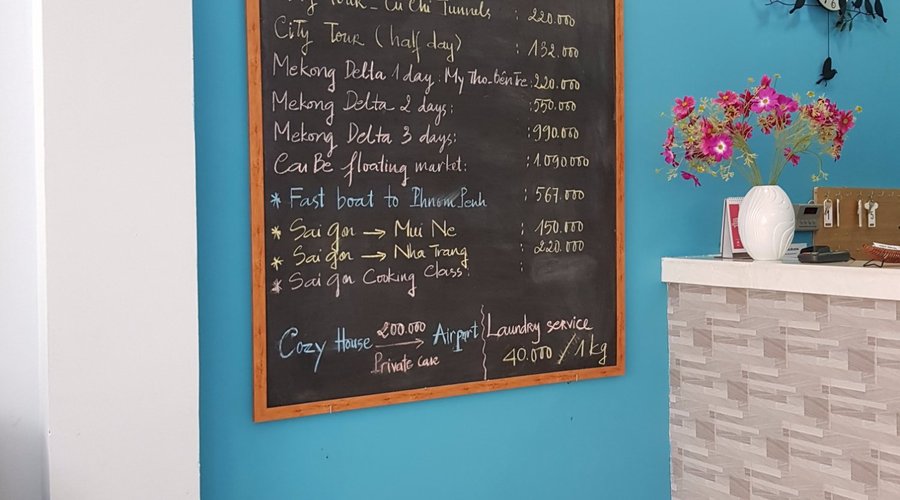 Tour - Cu Chi Tunnels : 220.000
City Tour (half day) : 132.000
Mekong Delta 1 day: My Tho-bến tre: 220.000
Mekong Delta 2 days: 550.000
Mekong Delta 3 days: :990.000
Cai Be floating market: :1090000
* Fast boat to Phnom Penh : 567.000
* Sai gon → Mui Ne : 150.000
* Sai gon → Nha Trang : 220.000
* Sai gon Cooking Class: :
Cozy House 200.000 → Airport
Private care
Laundry service
40.000 / 1 kg